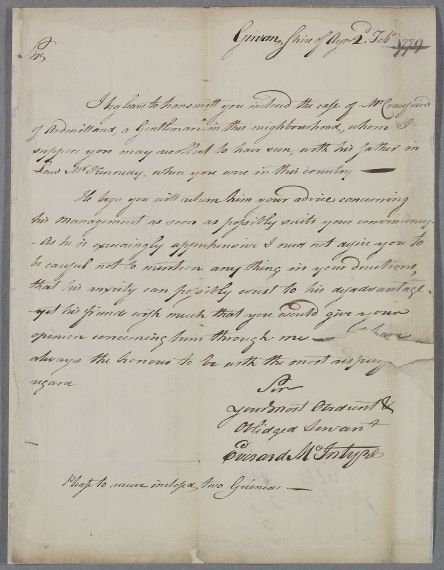 Girvan, Shire of Ayr 2d. Feb. 1779
Sir,
I beg leave to transmitt you inclosed the case of Mr Craufuird
of Ardmillan, a Gentleman in this neighbourhood, whom I
suppose you may recollect to have seen, with his father in
Law Mr Kennedy, when you were in this country —
He begs you will return him your advice concerning
his management as soon as possibly suits your conveniency
- As he is exceedingly apprehensive I need not advise you to
be careful not to mention any thing in your directions,
that his anxiety can possibly wrest to his disadvantage
- yet his friends wish much that you would give your
opinion concerning him through me — I have
always the honour to be with the most
regard
Sir
your most Obedient &
Oblidged Servant
McIntyre
Please to receive inclosed, two Guineas —